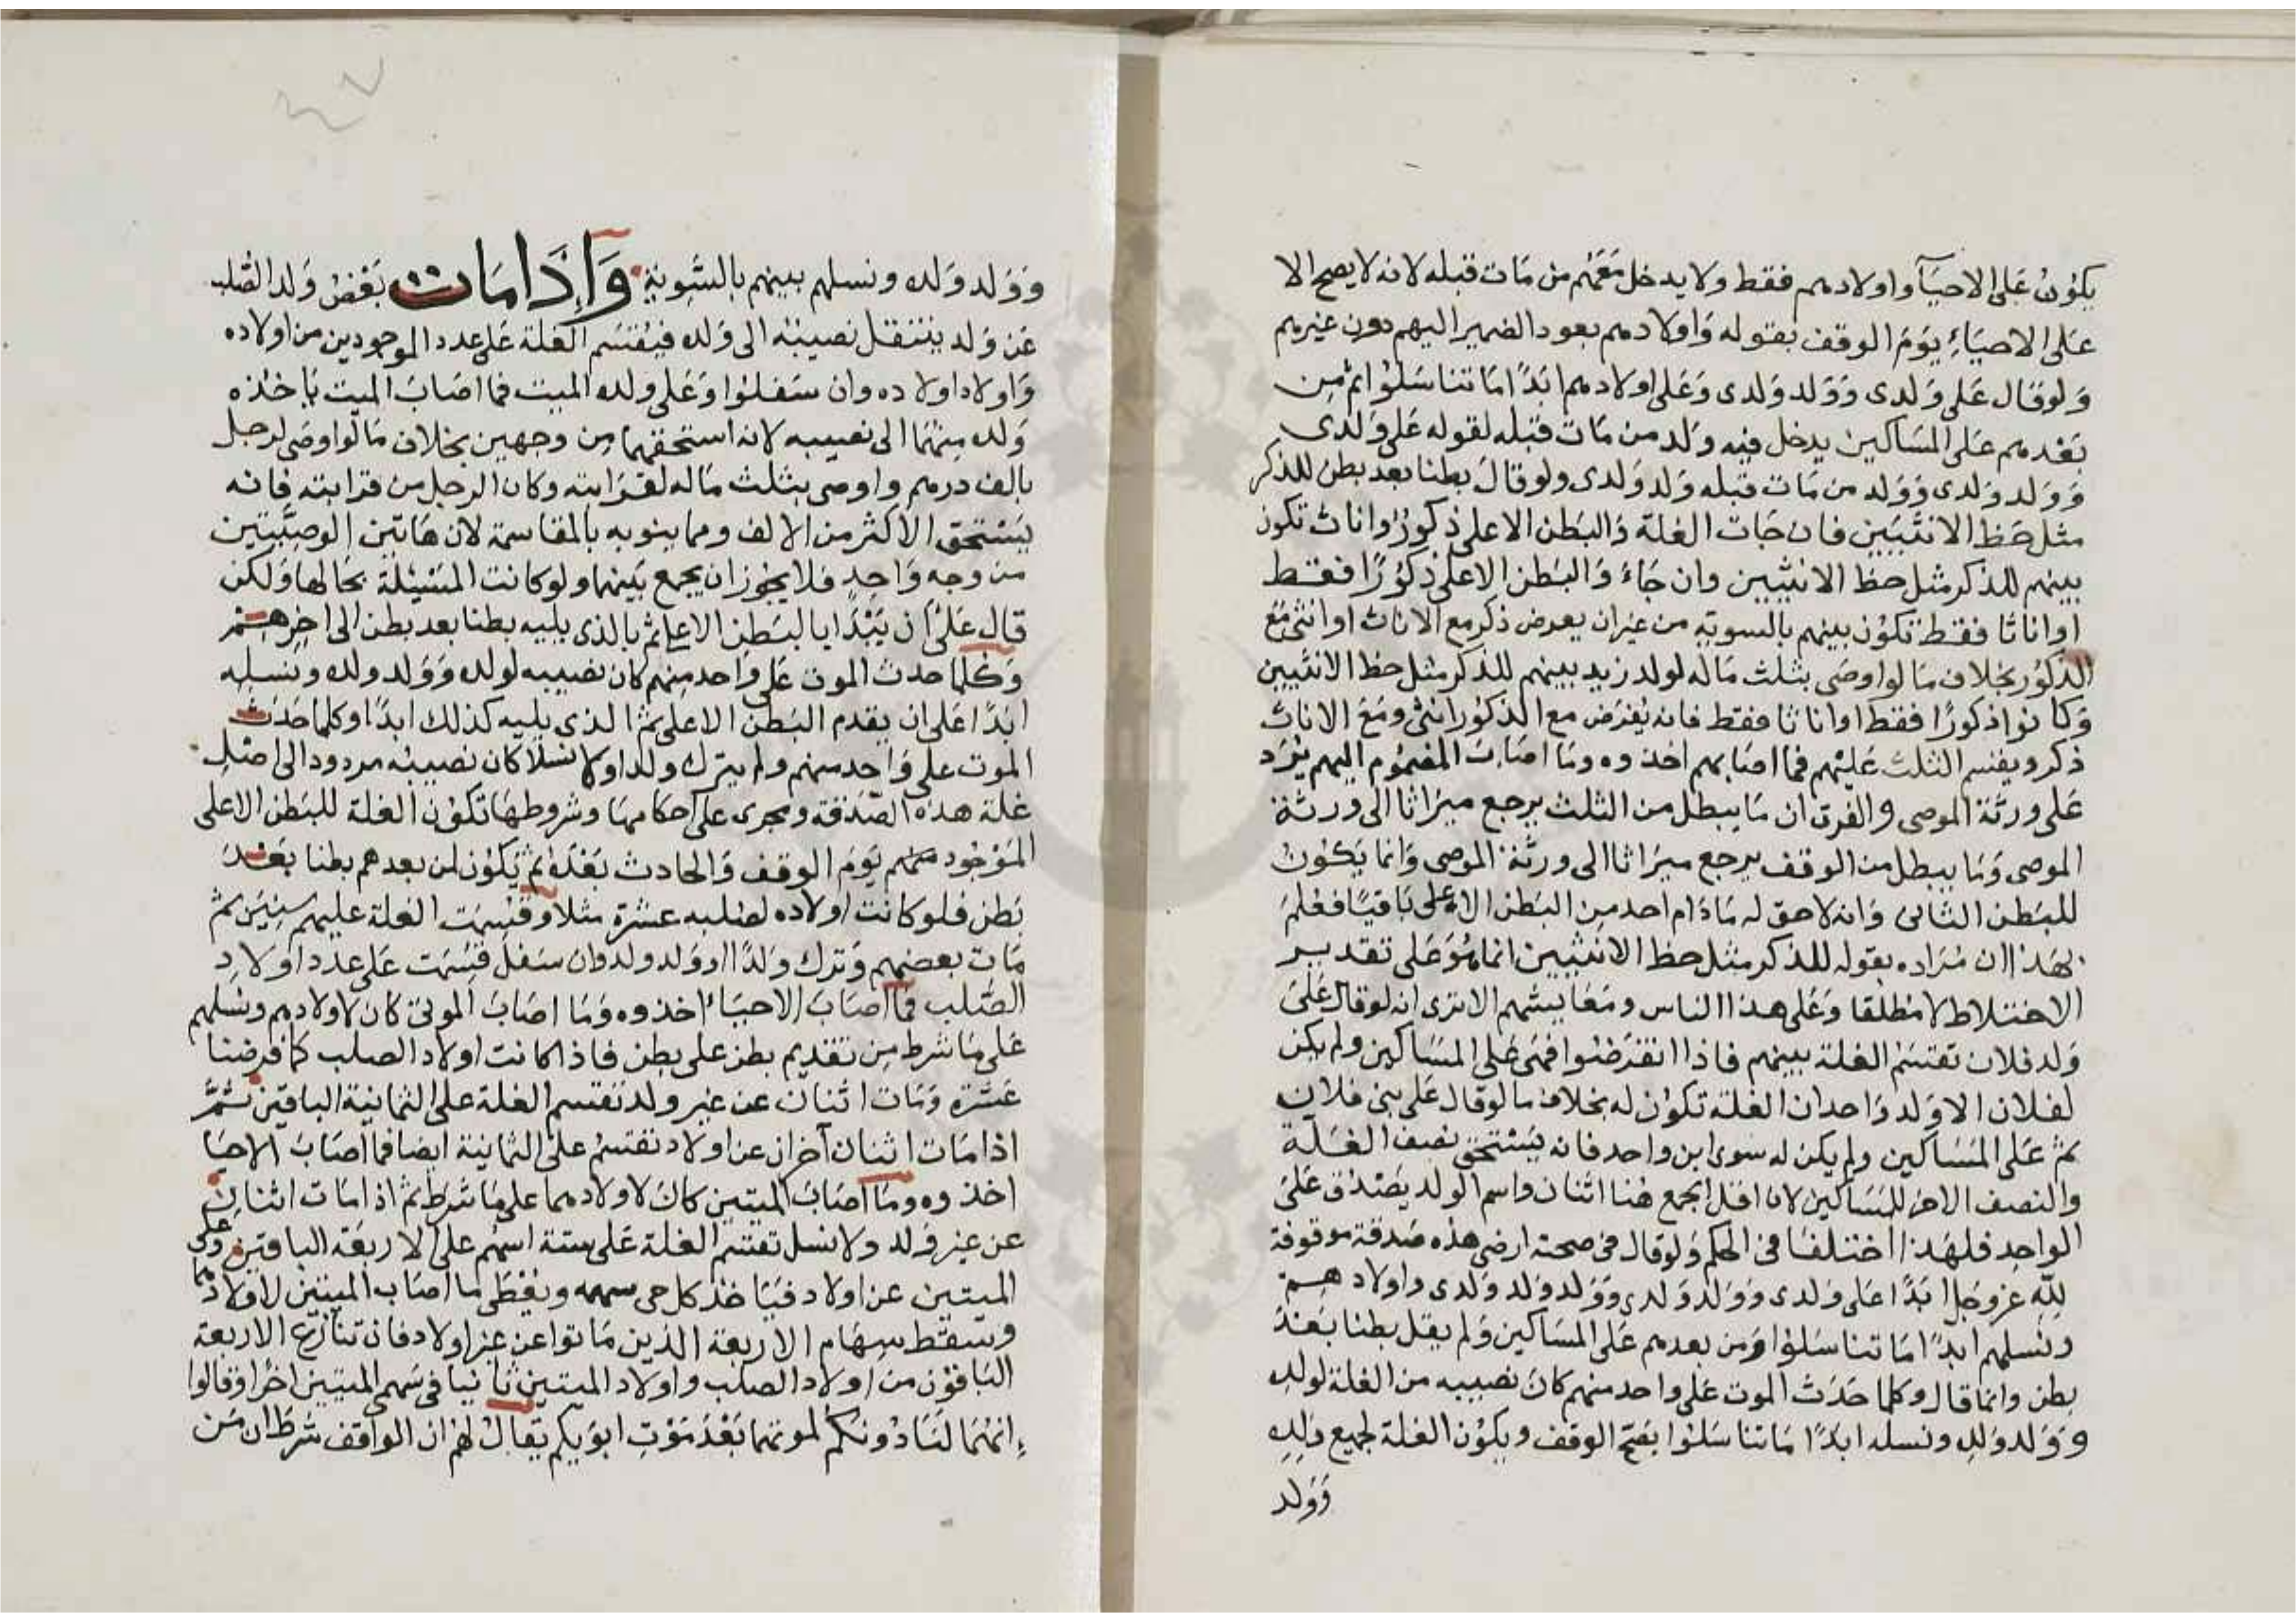 يكون على الاحيآ واولادهم فقط ولا يدخل معهم من مات قبله لانه لا يصح الا
على الاحياء يوم الوقف بقوله واولادهم بعود الضمير اليهم دون غيرهم
ولو قال على ولدى وولد ولدى وعلى اولادهم ابدًا ما تناسلوا ثم من
بعدهم على المساكين يدخل فيه ولد من مات قبله لقوله على ولدى
وولد ولدى وولد من مات قبله ولد ولدى ولو قال بطنا بعد بطن للذكر
مثل حظ الانثيين فان جات الغلة والبطن الاعلى ذكور واناث تكون
بينهم للذكر مثل حظ الانثيين وان جاء والبطن الاعلى ذكورًا فقط
او اناثا فقط تكون بينهم بالسوية من غير ان يعرض ذكر مع الاناث او انثى مع
الذكور بخلاف ما لو اوصى بثلث ماله لولد زيد بينهم للذكر مثل حظ الانثيين
وكانوا ذكورًا فقط او اناثا فقط فانه يفرض مع الذكور انثى ومع الاناث
ذكر ويقسم الثلث عليهم فما اصابهم اخذوه وما اصاب المضموم اليهم يرد
على ورثة الموصى والفرق ان ما يبطل من الثلث يرجع ميراثا الى ورثة
الموصى وما يبطل من الوقف يرجع ميراثا الى ورثة الموصى وانما يكون
للبطن الثانى وانه لا حق له ما دام احد من البطن الاعلى باقيًا فعلم
بهذا ان مراده بقوله للذكر مثل حظ الانثيين انما هو على تقدير
الاختلاط لا مطلقا وعلى هذا الناس ومعايشهم الا ترى انه لو قال على
ولد فلان تقتسم الغلة بينهم فاذا انقرضوا فهى على المساكين ولم يكن
لفلان الا ولد واحد ان الغلة تكون له بخلاف ما لو قال على بنى فلان
ثم على المساكين ولم يكن له سوى ابن واحد فانه يستحق نصف الغلة
والنصف الاخر للمساكين لان اقل الجمع هنا اثنان واسم الولد يصدق على
الواحد فلهذا اختلفا فى الحكم ولو قال فى صحته ارضى هذه صدقة موقوفة
لله عز وجل ابدًا على ولدى وولد ولدى وولد ولد ولدى واولادهم
ونسلهم ابدًا ما تناسلوا ومن بعدهم على المساكين ولم يقل بطنا بعد
بطن وانما قال وكلما حدث الموت على واحد منهم كان نصيبه من الغلة لولده
وولد ولده ونسله ابدًا ما تناسلوا بفتح الوقف ويكون الغلة لجميع ولده
وولد
وولد ولده ونسلهم بينهم بالسوية واذا مات بعض ولد الصلب
عن ولد ينتقل نصيبه الى ولده فيقتسم الغلة على عدد الموجودين من اولاده
واولاد اولاده وان سفلوا وعلى ولده الميت فما اصاب الميت ياخذه
ولده منهما الى نصيبه لانه استحقهما من وجهين بخلاف ما لو اوصى لرجل
بالف درهم واوصى بثلث ماله لقرابته وكان الرجل من قرابته فانه
يستحق الاكثر من الالف ومما ينوبه بالمقاسمة لان هاتين الوصيتين
من وجه واحد فلا يجوز ان يجمع بينهما ولو كانت المسئلة بحالها ولكن
قال على ان يبدا بالبطن الاعلى ثم بالذى يليه بطنا بعد بطن الى اخرهم
وكلما حدث الموت على واحد منهم كان نصيبه لولده وولد ولده ونسله
ابدًا على ان يقدم البطن الاعلى ثم الذى يليه كذلك ابدًا وكلما حدث
الموت على واحد منهم ولم يترك ولدا ولا نسلا كان نصيبه مردودا الى اصل
غلة هذه الصدقة ويجرى على احكامها وشروطها تكون الغلة للبطن الاعلى
الموجود منهم يوم الوقف والحادث بعده ثم يكون لمن بعدهم بطنا بعد
بطن فلو كانت اولاده لصلبه عشرة مثلا وقسمت الغلة عليهم سنين ثم
مات بعضهم وترك ولدًا او ولد ولد وان سفل قسمت على عدد اولاد
الصلب فما اصاب الاحياء اخذوه وما اصاب الموتى كان لاولادهم ونسلهم
على ما شرط من تقديم بطن على بطن فاذا كانت اولاد الصلب كما فرضنا
عشرة ومات اثنان عن غير ولد تقتسم الغلة على الثمانية الباقين ثم
اذا مات اثنان آخران عن اولاد تقتسم على الثمانية ايضا فما اصاب الاحيا
اخذوه وما اصاب الميتين كان لاولادهما على ما شرط ثم اذا مات اثنان
عن غير ولد ولا نسل تقتسم الغلة على ستة اسهم على الاربعة الباقين وعلى
الميتين عن اولاد فياخذ كل حى سهمه ويعطى ما اصاب الميتين لاولادهما
وسقط سهام الاربعة الذين ماتوا عن غير اولاد فان تنازع الاربعة
الباقون من اولاد الصلب واولاد الميتين ثانيا فى سهم الميتين اخرا وقالوا
انهما لنا دونكم لموتهما بعد موت ابويكم يقال لهم ان الواقف شرط ان من